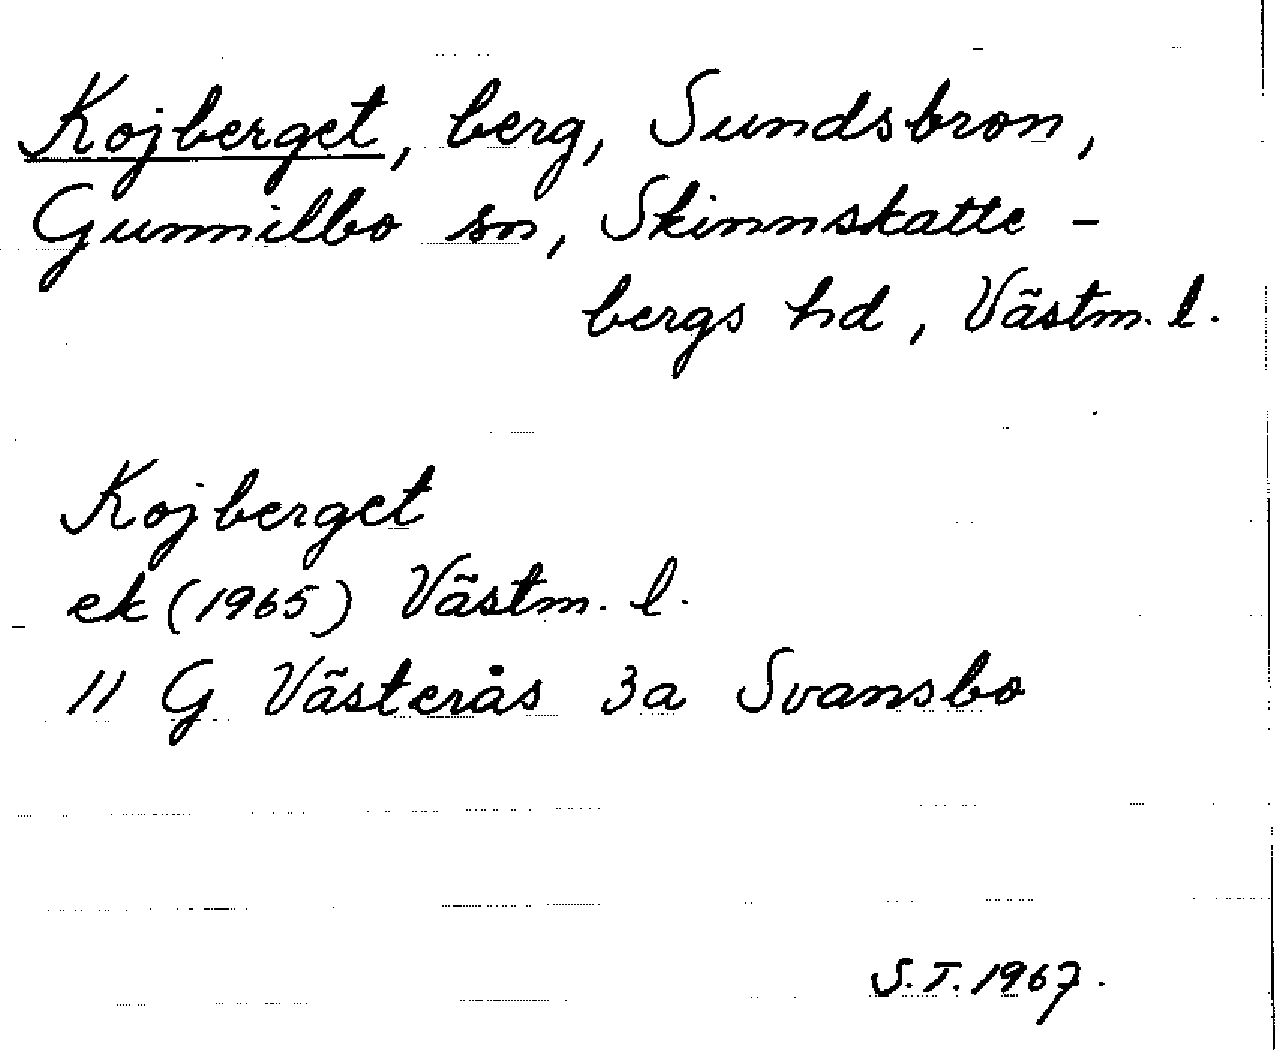 Kojberget, berg, Sundsbron,
Gunnilbo sn, Skinnskatte-
bergs hd, Västm. l.
Kojberget
ek (1965) Västm. l.
11 G Västerås 3a Svansbo
S.T. 1967.